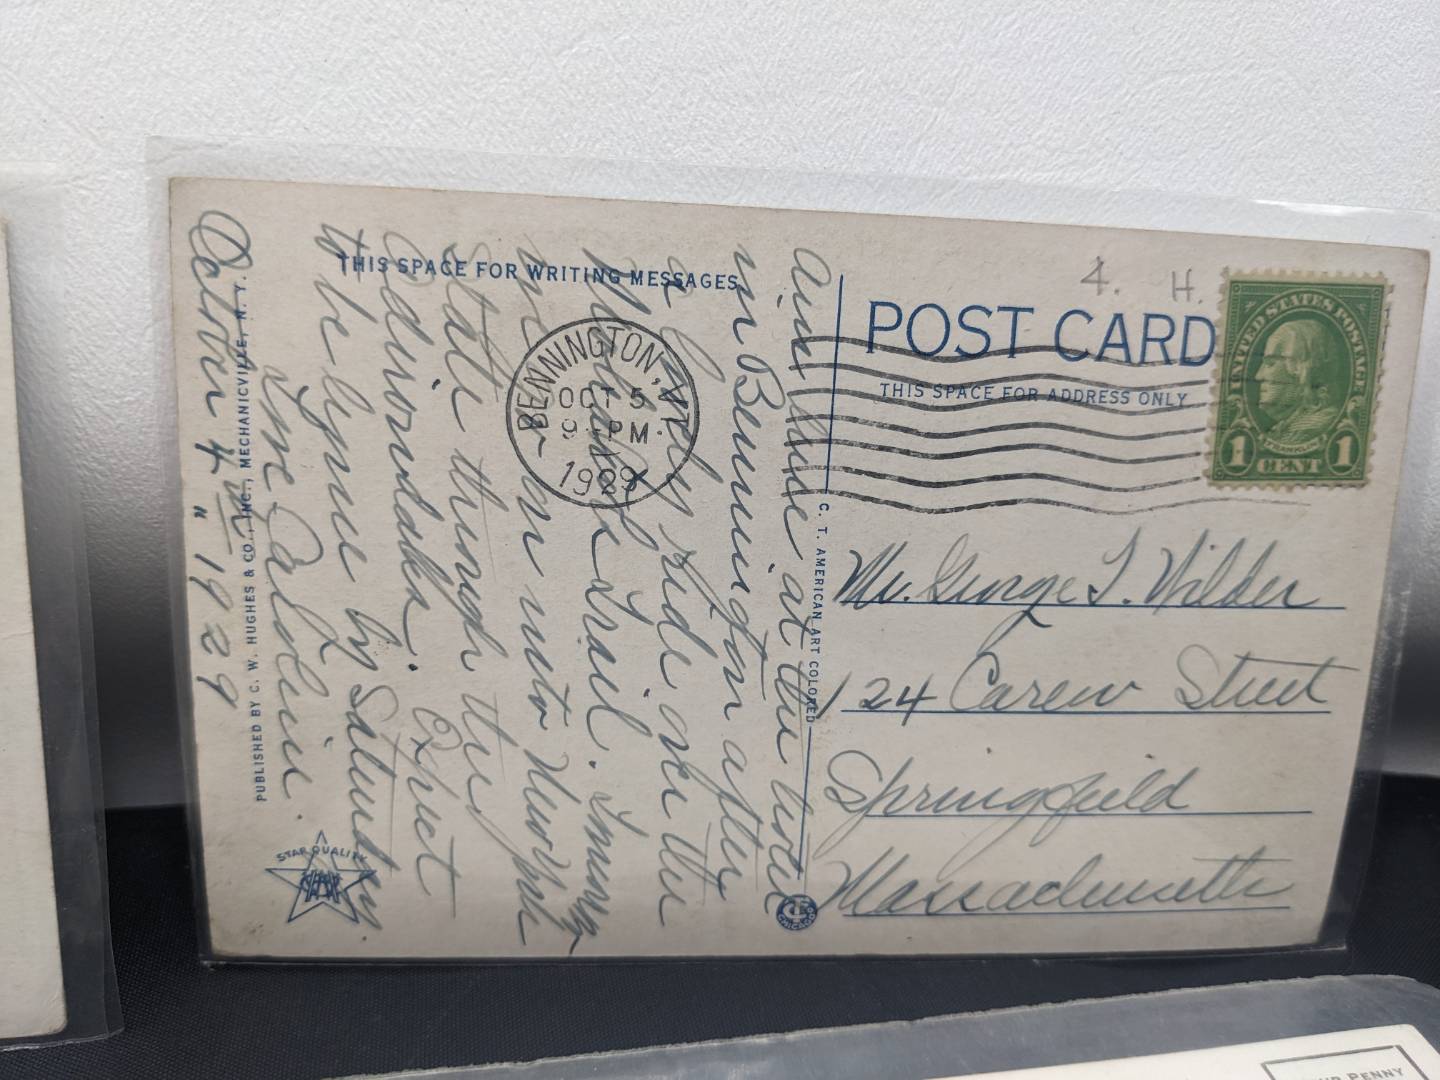 THIS SPACE FOR WRITING MESSAGES
4. H.
POST CARD
THIS SPACE FOR ADDRESS ONLY
UNITED STATES POSTAGE
FRANKLIN
1 CENT 1
BENNINGTON, VT.
OCT 5
9 - PM
1929
Am here at the hotel
in Bennington after
a lovely ride over the
Mohawk Trail. Tomorrow
we on into New York
State through the
Adirondaks. Expect
to be home by Saturday
Love Caroline.
October 4th 1929
Mr. George T. Wilder
124 Carew Street
Springfield
Massachusetts
C. T. AMERICAN ART COLORED
PUBLISHED BY C. W. HUGHES & CO., INC., MECHANICVILLE, N. Y.
STAR QUALITY
CHICAGO
PENNY